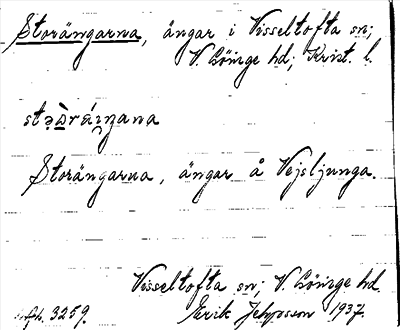 Storängarna, ängar i Visseltofta sn;
V. Göinge hd; Krist. l.
Storängarna, ängar å Vejsljunga.
Visseltofta sn; V. Göinge hd.
3259. Erik Jeppsson 1937.